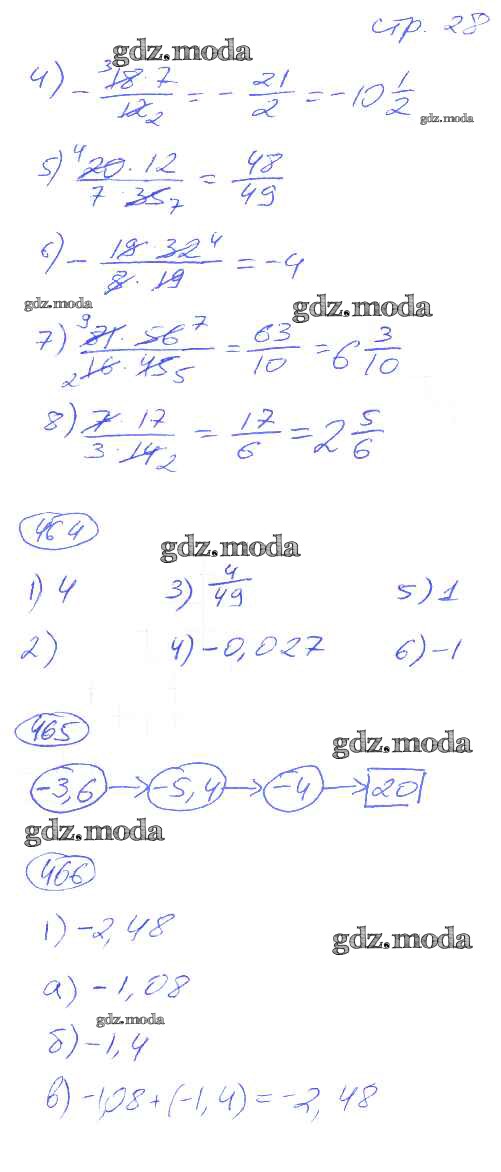 стр. 28
gdz.moda
4) - 18 · 7 / 12 = - 21/2 = -10 1/2
gdz.moda
5) 20 · 12 / 7 · 35 = 48/49
6) - 18 · 32 / 8 · 19 = -4
gdz.moda
gdz.moda
7) 81 · 56 / 16 · 45 = 63/10 = 6 3/10
8) 7 · 17 / 3 · 14 = 17/6 = 2 5/6
464
gdz.moda
1) 4 3) 4/49 5) 1
2) 4) -0,027 6) -1
465
gdz.moda
-3,6 → -5,4 → -4 → 20
gdz.moda
466
1) -2,48
gdz.moda
а) -1,08
gdz.moda
б) -1,4
в) -1,08 + (-1,4) = -2,48